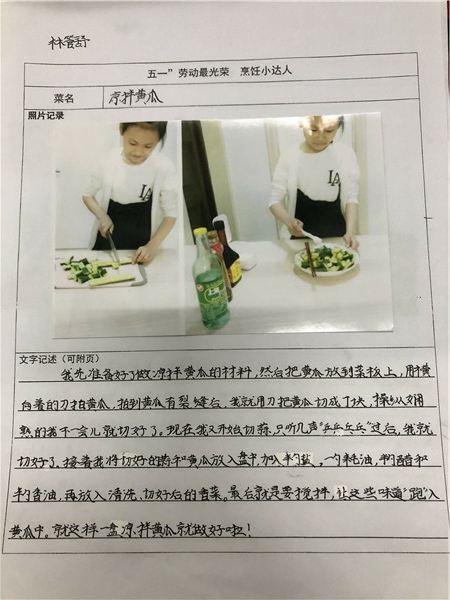 林
五一”劳动最光荣 烹饪小达人
菜名
凉拌黄瓜
照片记录
LA
LA
文字记述（可附页）
我先准备好了做凉拌黄瓜的材料，然后把黄瓜放到菜板上，用横
向着的刀拍黄瓜，拍到黄瓜有裂缝后，我就用刀把黄瓜切成了块，操纵娴
熟的我不一会儿就切好了。现在我又开始切蒜，只听几声“乒乒乓乓”过后，我就
切好了。接着我将切好的蒜和黄瓜放入盘中，加入半勺盐，一勺耗油，半勺醋和
半勺香油，再放入清洗、切好后的香菜。最后就是要搅拌，让这些味道“跑”入
黄瓜中。就这样一盘凉拌黄瓜就做好啦！